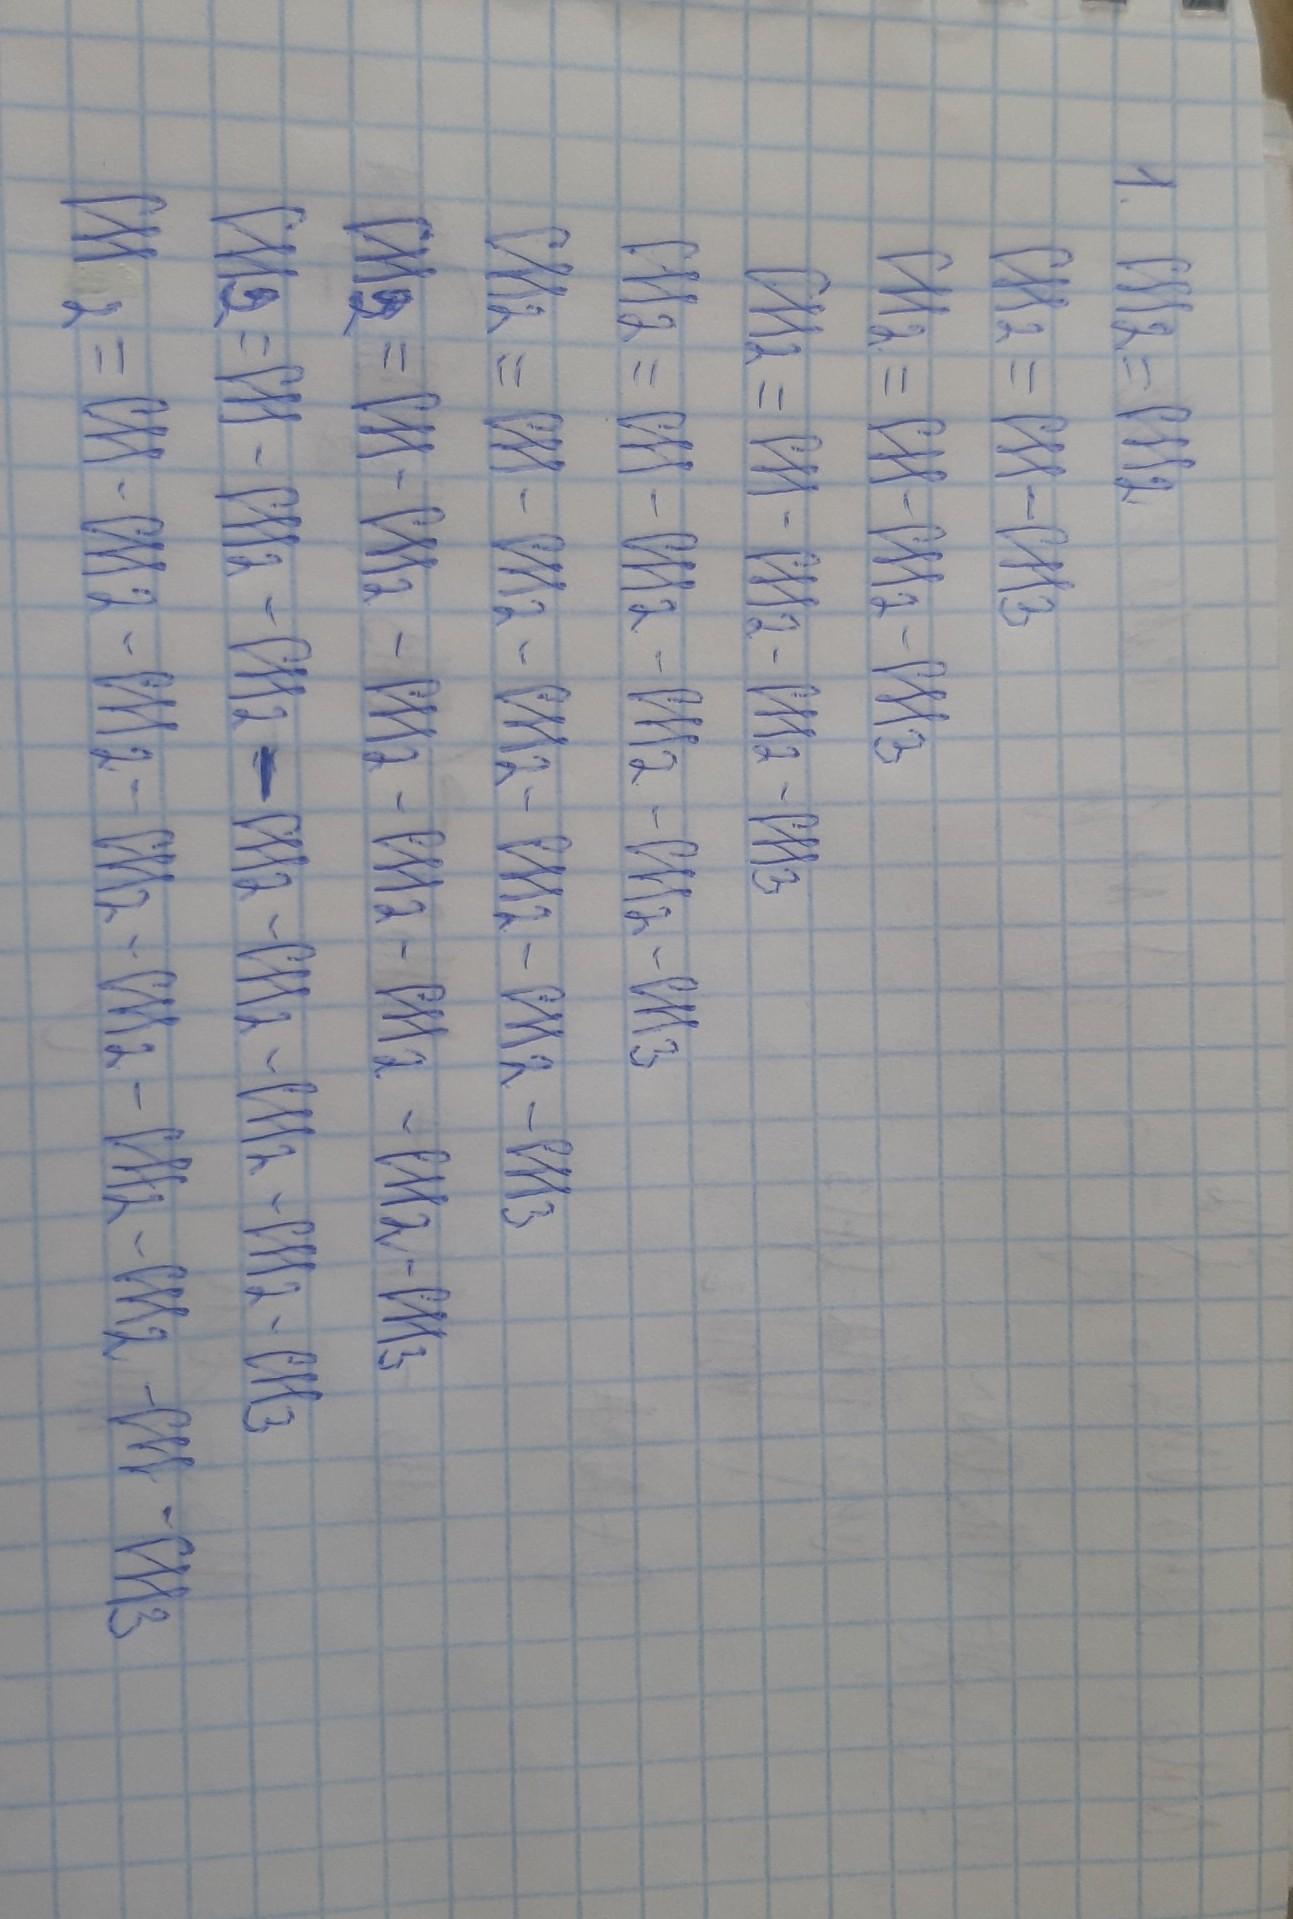 1. CH2=CH2
CH2=CH-CH3
CH2=CH-CH2-CH3
CH2=CH-CH2-CH2-CH3
CH2=CH-CH2-CH2-CH2-CH3
CH2=CH-CH2-CH2-CH2-CH2-CH3
CH2=CH-CH2-CH2-CH2-CH2-CH2-CH3
CH2=CH-CH2-CH2-CH2-CH2-CH2-CH2-CH3
CH2=CH-CH2-CH2-CH2-CH2-CH2-CH2-CH-CH3